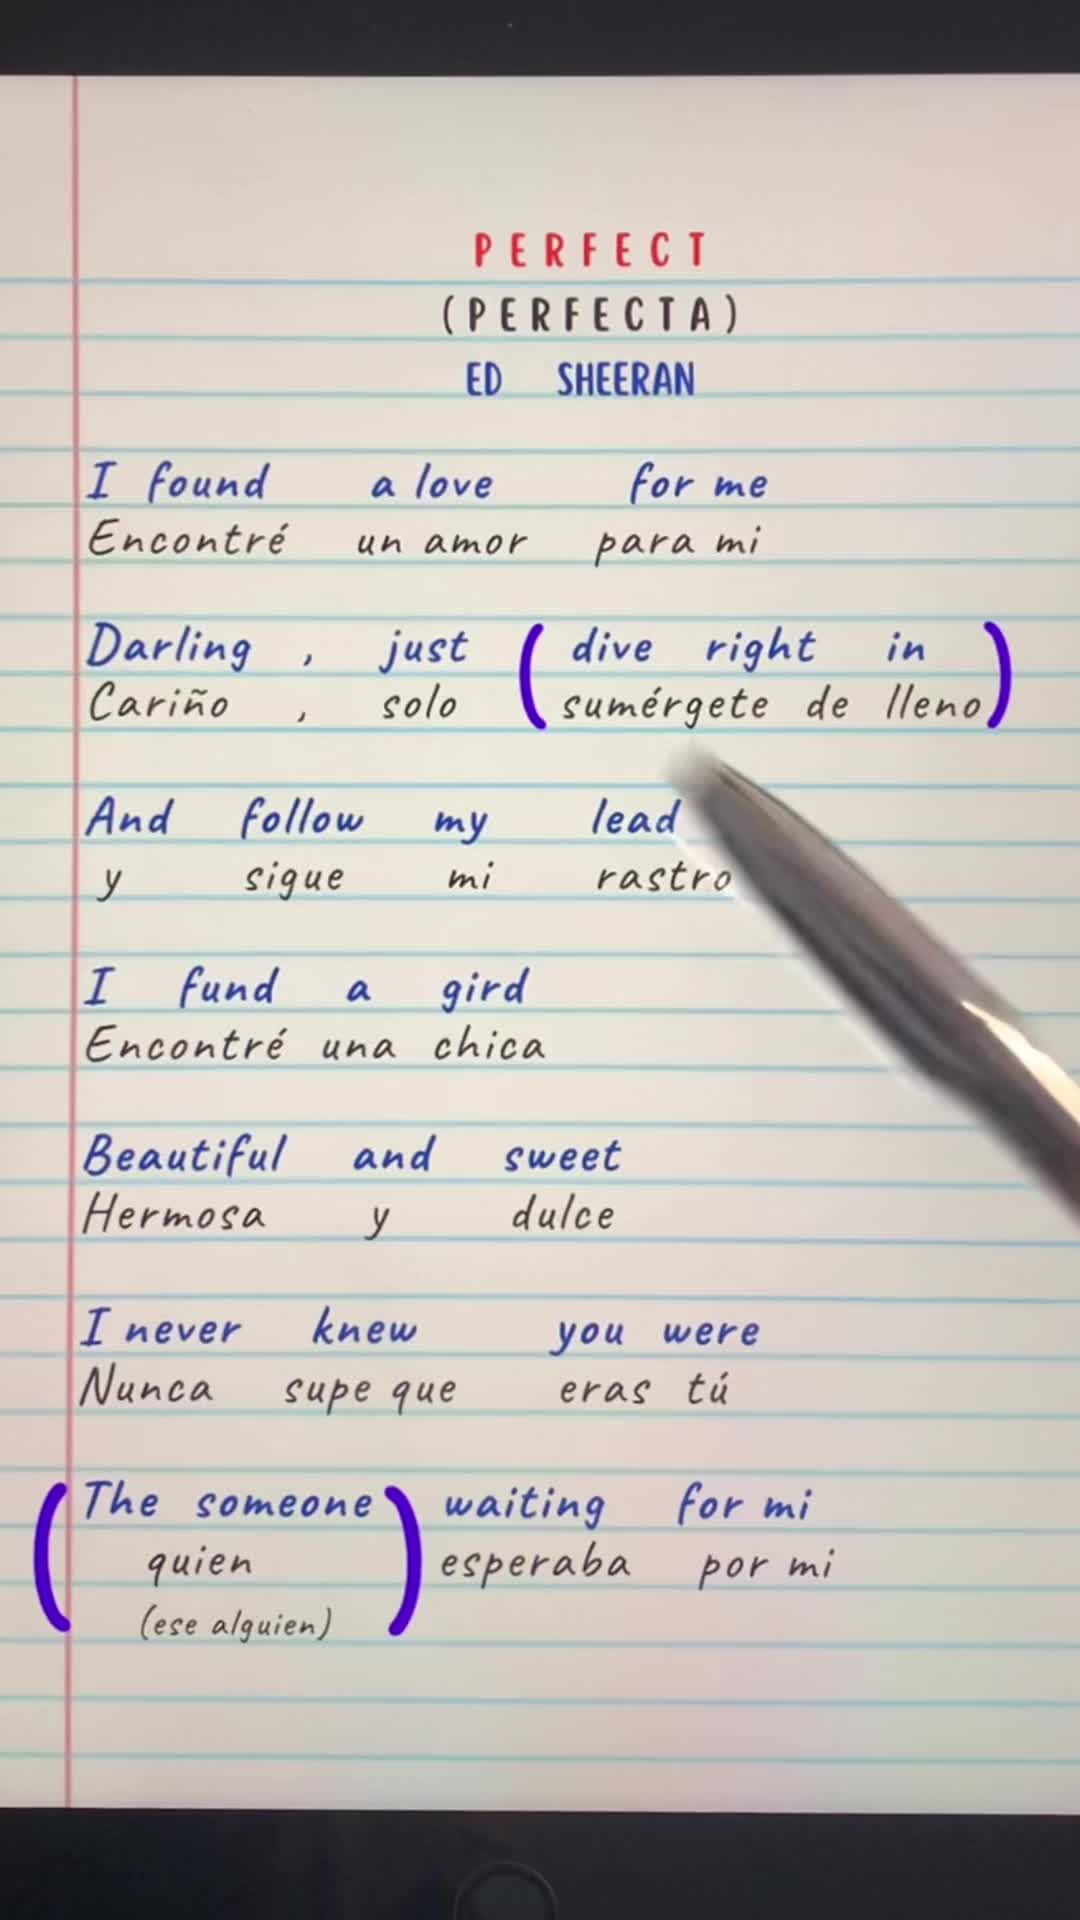 PERFECT
(PERFECTA)
ED SHEERAN
I found a love for me
Encontré un amor para mi
Darling , just (dive right in)
Cariño , solo (sumérgete de lleno)
And follow my lead
y sigue mi rastro
I fund a gird
Encontré una chica
Beautiful and sweet
Hermosa y dulce
I never knew you were
Nunca supe que eras tú
(The someone) waiting for mi
quien esperaba por mi
(ese alguien)